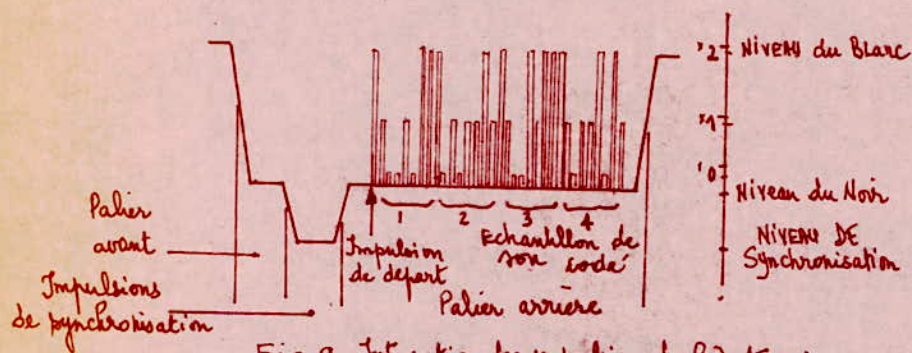 '2 NIVEAU du Blanc
'1
'0
Niveau du Noir
NIVEAU DE
Synchronisation
Palier
avant
Impulsions
de synchronisation
Impulsion
de départ
1 2 3 4
Echantillon de
son codé
Palier arrière
Fig 9